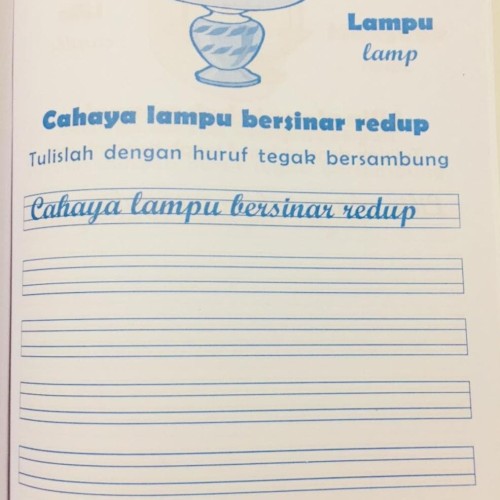 Lampu
lamp
Cahaya lampu bersinar redup
Tulislah dengan huruf tegak bersambung
Cahaya lampu bersinar redup